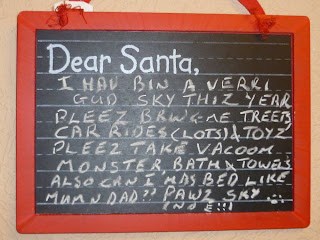 Dear Santa,
I HAV BIN A VERRI
GUD SKY THIZ YEAR
PLEEZ BRWG ME TREETS
CAR RIDES (LOTS) & TOYZ
PLEEZ TAKE VACOOM
MONSTER, BATH & TOWELS
ALSO CAN I HAS BED LIKE
MUM N DAD?? PAWZ SKY